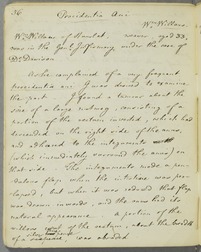 36 Procidentia Ani
Wm Willows.
Wm Willows of Hamlet, weaver aged 33,
was in the Genl Infirmary under the care of
Dr Davison
As he complained of a very frequent
procidentia ani I was desired to examine
the part. I found a tumor about the
size of a large nutmeg, consisting of a
portion of the rectum inverted, which had
descended on the right side of the anus,
and adhered to the integuments
(which immediately surround the anus) on
that side. The integuments made a pen-
dulous flap when the intestine was pro-
lapsed, but when it was reduced that flap
was drawn inwards, and the anus had its
natural appearance. A portion of the
villous of the rectum, about the breadth
of a sixpence, was abraded